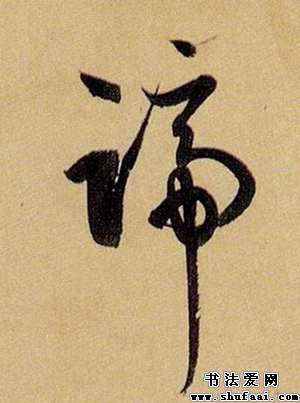 諦
书法爱网
www.shufaai.com